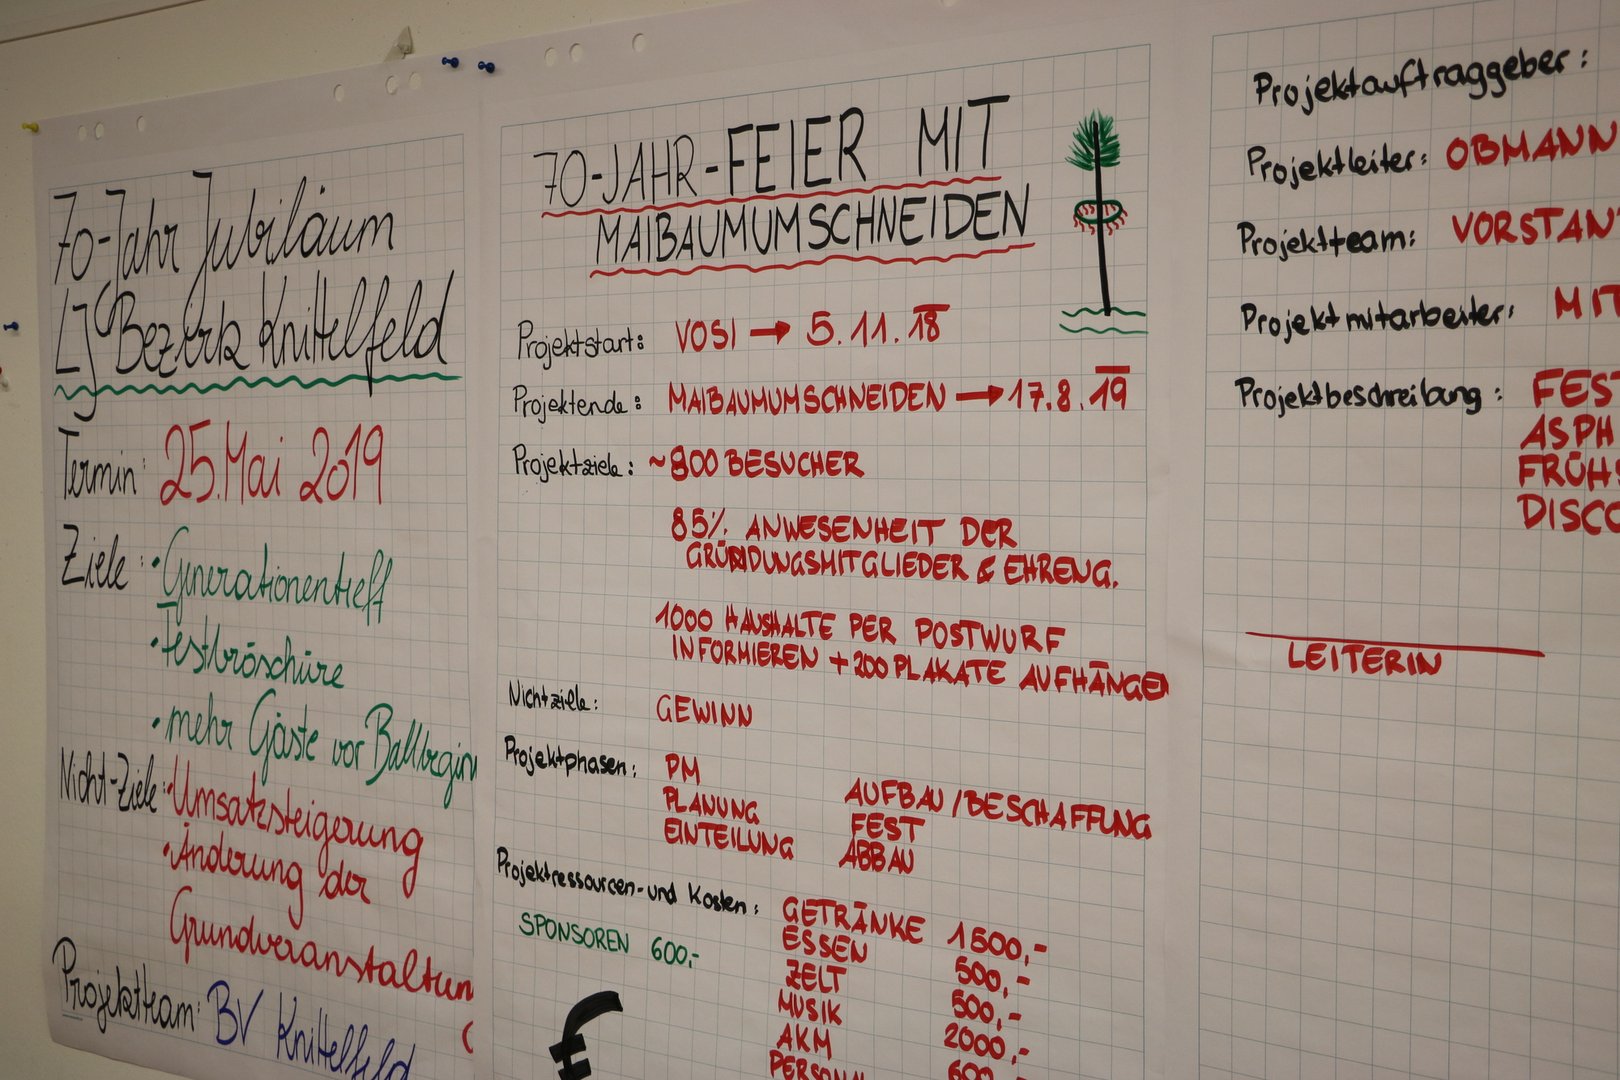 70-Jahr Jubiläum
LJ Bezirk Knittelfeld
Termin: 25. Mai 2019
Ziele: • Generationentreff
• Festbroschüre
• mehr Gäste vor Ballbeginn
Nicht-Ziele: • Umsatzsteigerung
• Änderung der
Grundveranstaltun
Projektteam: BV Knittelfeld
70-JAHR-FEIER MIT
MAIBAUMUMSCHNEIDEN
Projektstart: VOSI → 5.11.18
Projektende: MAIBAUMUMSCHNEIDEN → 17.8.19
Projektziele: ~800 BESUCHER
85% ANWESENHEIT DER
GRÜNDUNGSMITGLIEDER & EHRENG.
1000 HAUSHALTE PER POSTWURF
INFORMIEREN + 200 PLAKATE AUFHÄNGEN
Nichtziele: GEWINN
Projektphasen: PM
PLANUNG AUFBAU/BESCHAFFUNG
EINTEILUNG FEST
ABBAU
Projektressourcen- und Kosten: GETRÄNKE 1500,-
SPONSOREN 600,- ESSEN 500,-
ZELT 500,-
MUSIK 2000,-
AKM 600,-
PERSONAL
€
Projektauftraggeber:
Projektleiter: OBMANN
Projektteam: VORSTAN
Projektmitarbeiter: MIT
Projektbeschreibung: FEST
ASPH
FRÜHS
DISCO
LEITERIN